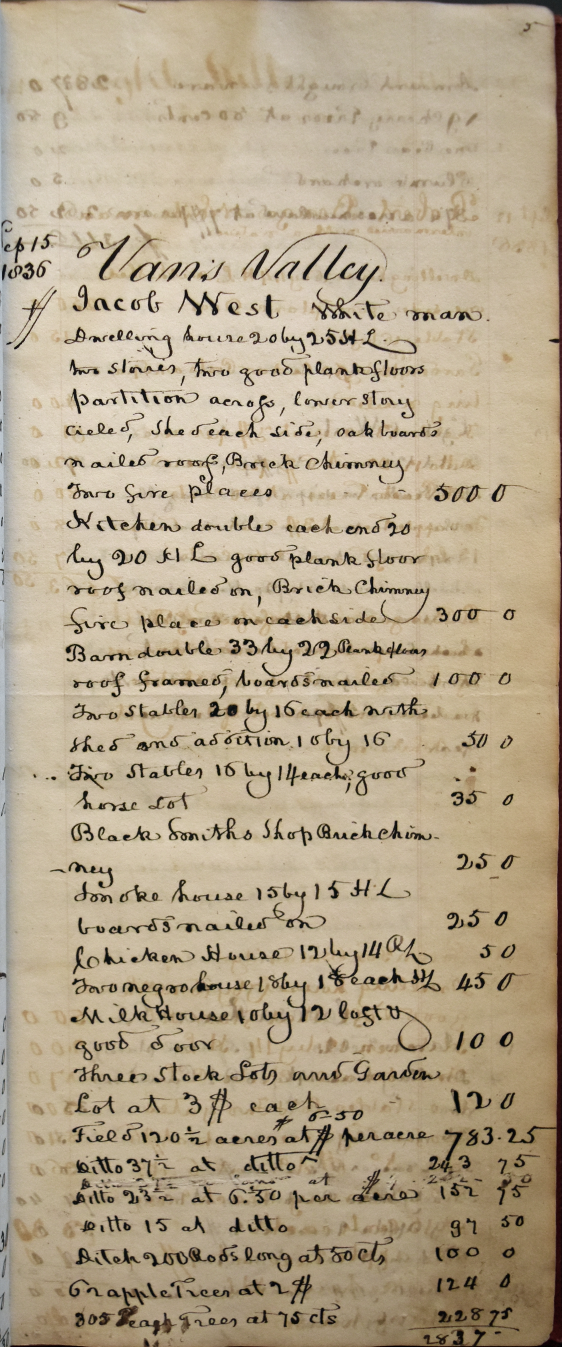 5
Sep 15
1836
Van's Valley.
Jacob West White man.
Dwelling house 20 by 25 H L
two stories, two good plank floors
partition across, lower story
cieled, shed each side, oak boards
nailed roof, Brick Chimney
Two fire places - - 500 0
Kitchen double each end 20
by 20 H L good plank floor
roof nailed on, Brick Chimney
fire place on each side 300 0
Barn double 33 by 22 Plank floors
roof framed, boards nailed 100 0
Two Stables 20 by 16 each with
shed and addition 10 by 16 50 0
Two Stables 16 by 14 each, good
horse Lot 35 0
Black Smiths Shop Brick chim-
-ney 25 0
Smoke house 15 by 15 H L
boards nailed on 25 0
Chicken House 12 by 14 R L 5 0
Two negro house 18 by 18 each H L 45 0
Milk House 10 by 12 loft &
good door 10 0
Three Stock Lots and Garden
Lot at 3 $ each - 12 0
Field 120 ½ acres at $ 6.50 per acre 783.25
Ditto 37 ½ at ditto 243 75
Ditto 23 ½ at 6.50 per acre 152 75
Ditto 15 at ditto 97 50
Ditch 200 Rods long at 50 cts 100 0
62 apple Trees at 2 $ 124 0
305 Peach Trees at 75 cts 228 75
2837 -